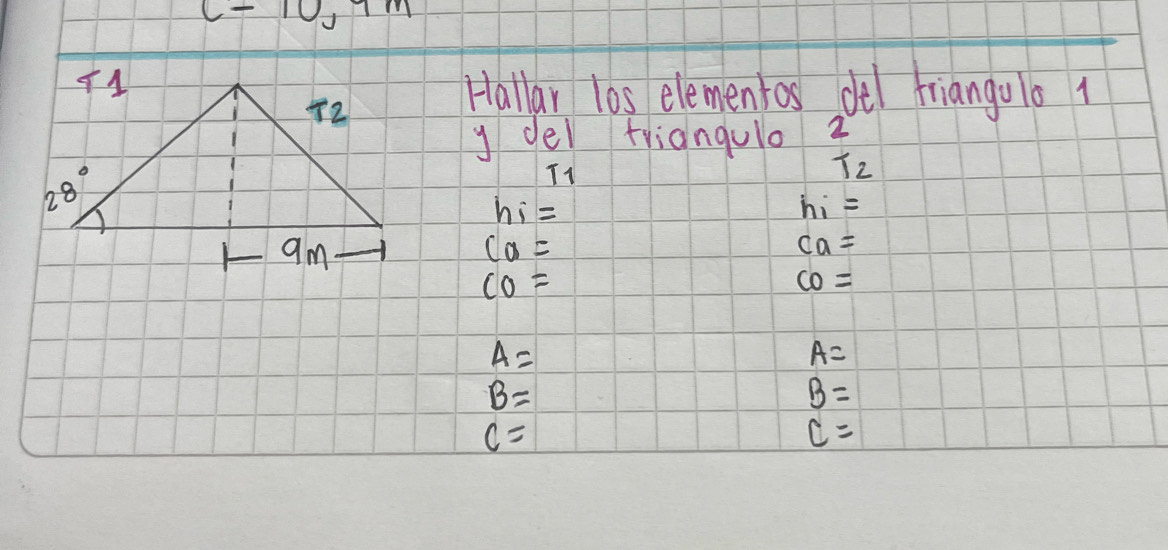 c = 10,4m
T1
T2
28°
9m
Hallar los elementos del triangulo 1
y del triangulo 2
T1
T2
hi =
hi =
ca =
ca =
co =
co =
A=
A=
B=
B=
C=
C=